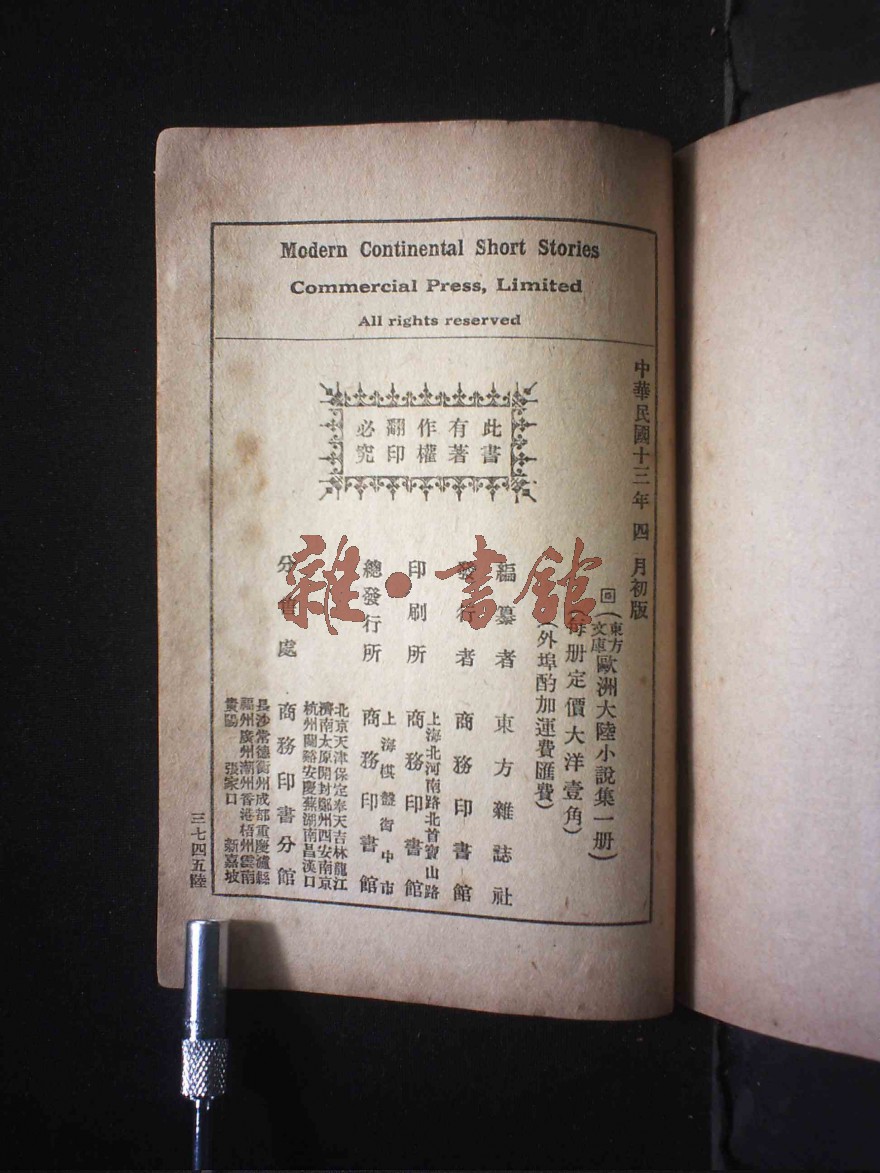 Modern Continental Short Stories
Commercial Press, Limited
All rights reserved
此書
有著
作權
翻印
必究
中華民國十三年四月初版
回(東方文庫歐洲大陸小說集一册)
(每册定價大洋壹角)
(外埠酌加運費匯費)
編纂者 東方雜誌社
發行者 商務印書館
印刷所 上海北河南路北首寶山路 商務印書館
總發行所 上海棋盤街中市 商務印書館
分售處 商務印書分館
北京天津保定奉天吉林龍江
濟南太原開封鄭州西安南京
杭州蘭谿安慶蕪湖南昌漢口
長沙常德衡州成都重慶瀘縣
福州廣州潮州香港梧州雲南
貴陽 張家口 新嘉坡
三七四五陸
雜·書館